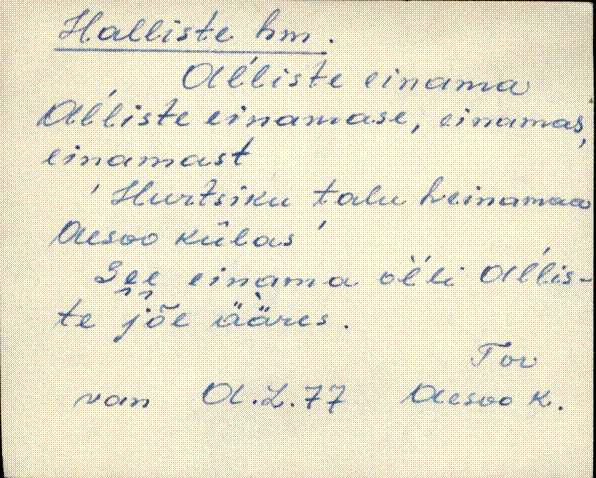 Halliste hm.
Al̀liste einama
Al̀liste einamase, einamas,
einamast
' Hurtsiku talu heinamaa
Aesoo külas '
See einama òl̀li Al̀lis-
te jõe ääres.
Tor
van A.L. 77 Aesoo k.